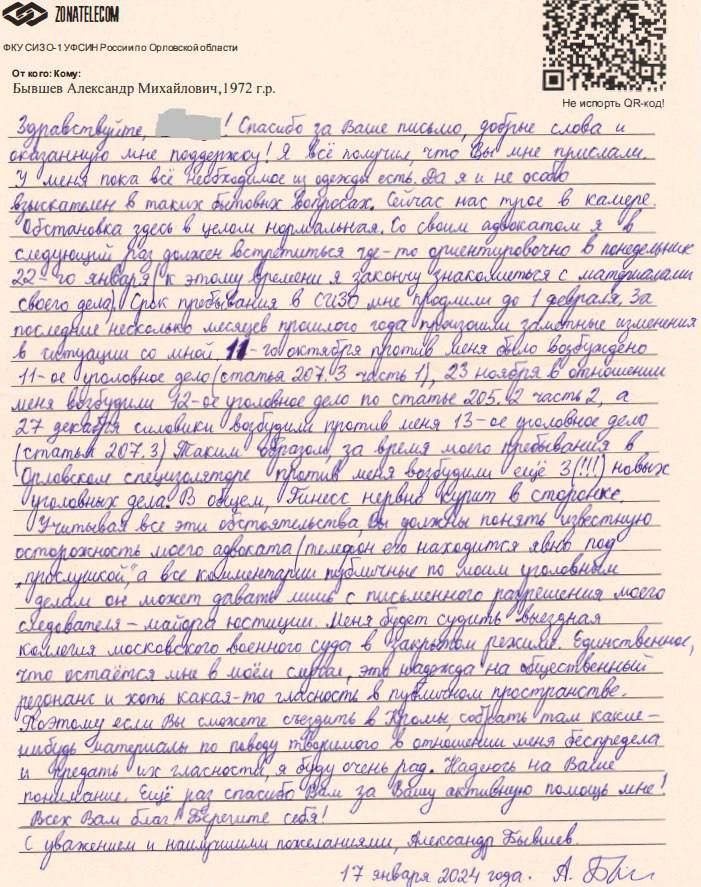 ZONATELECOM
ФКУ СИЗО-1 УФСИН России по Орловской области
От кого: Кому:
Бывшев Александр Михайлович,1972 г.р.
Не испорть QR-код!
Здравствуйте, ! Спасибо за Ваше письмо, добрые слова и
оказанную мне поддержку! Я всё получил, что Вы мне прислали.
У меня пока всё необходимое из одежды есть. Да я и не особо
взыскателен в таких бытовых вопросах. Сейчас нас трое в камере.
Обстановка здесь в целом нормальная. Со своим адвокатом я в
следующий раз должен встретиться где-то ориентировочно в понедельник
22-го января (к этому времени я закончу знакомиться с материалами
своего дела). Срок пребывания в СИЗО мне продлили до 1 февраля. За
последние несколько месяцев прошлого года произошли заметные изменения
в ситуации со мной. 11-го октября против меня было возбуждено
11-ое уголовное дело (статья 207.3 часть 1), 23 ноября в отношении
меня возбудили 12-ое уголовное дело по статье 205.2 часть 2, а
27 декабря силовики возбудили против меня 13-ое уголовное дело
(статья 207.3) Таким образом, за время моего пребывания в
Орловском специзоляторе против меня возбудили ещё 3(!!!) новых
уголовных дела. В общем, Гинесс нервно курит в сторонке.
Учитывая все эти обстоятельства, Вы должны понять известную
осторожность моего адвоката (телефон его находится явно под
„прослушкой“, а все комментарии публичные по моим уголовным
делам он может давать лишь с письменного разрешения моего
следователя – майора юстиции. Меня будет судить выездная
коллегия московского военного суда в закрытом режиме. Единственное,
что остаётся мне в моём случае, это надежда на общественный
резонанс и хоть какая-то гласность в публичном пространстве.
Поэтому если Вы сможете съездить в Кромы, собрать там какие-
нибудь материалы по поводу творимого в отношении меня беспредела
и предать их гласности, я буду очень рад. Надеюсь на Ваше
понимание. Ещё раз спасибо Вам за Вашу активную помощь мне!
Всех Вам благ! Берегите себя!
С уважением и наилучшими пожеланиями, Александр Бывшев.
17 января 2024 года. А. Бы